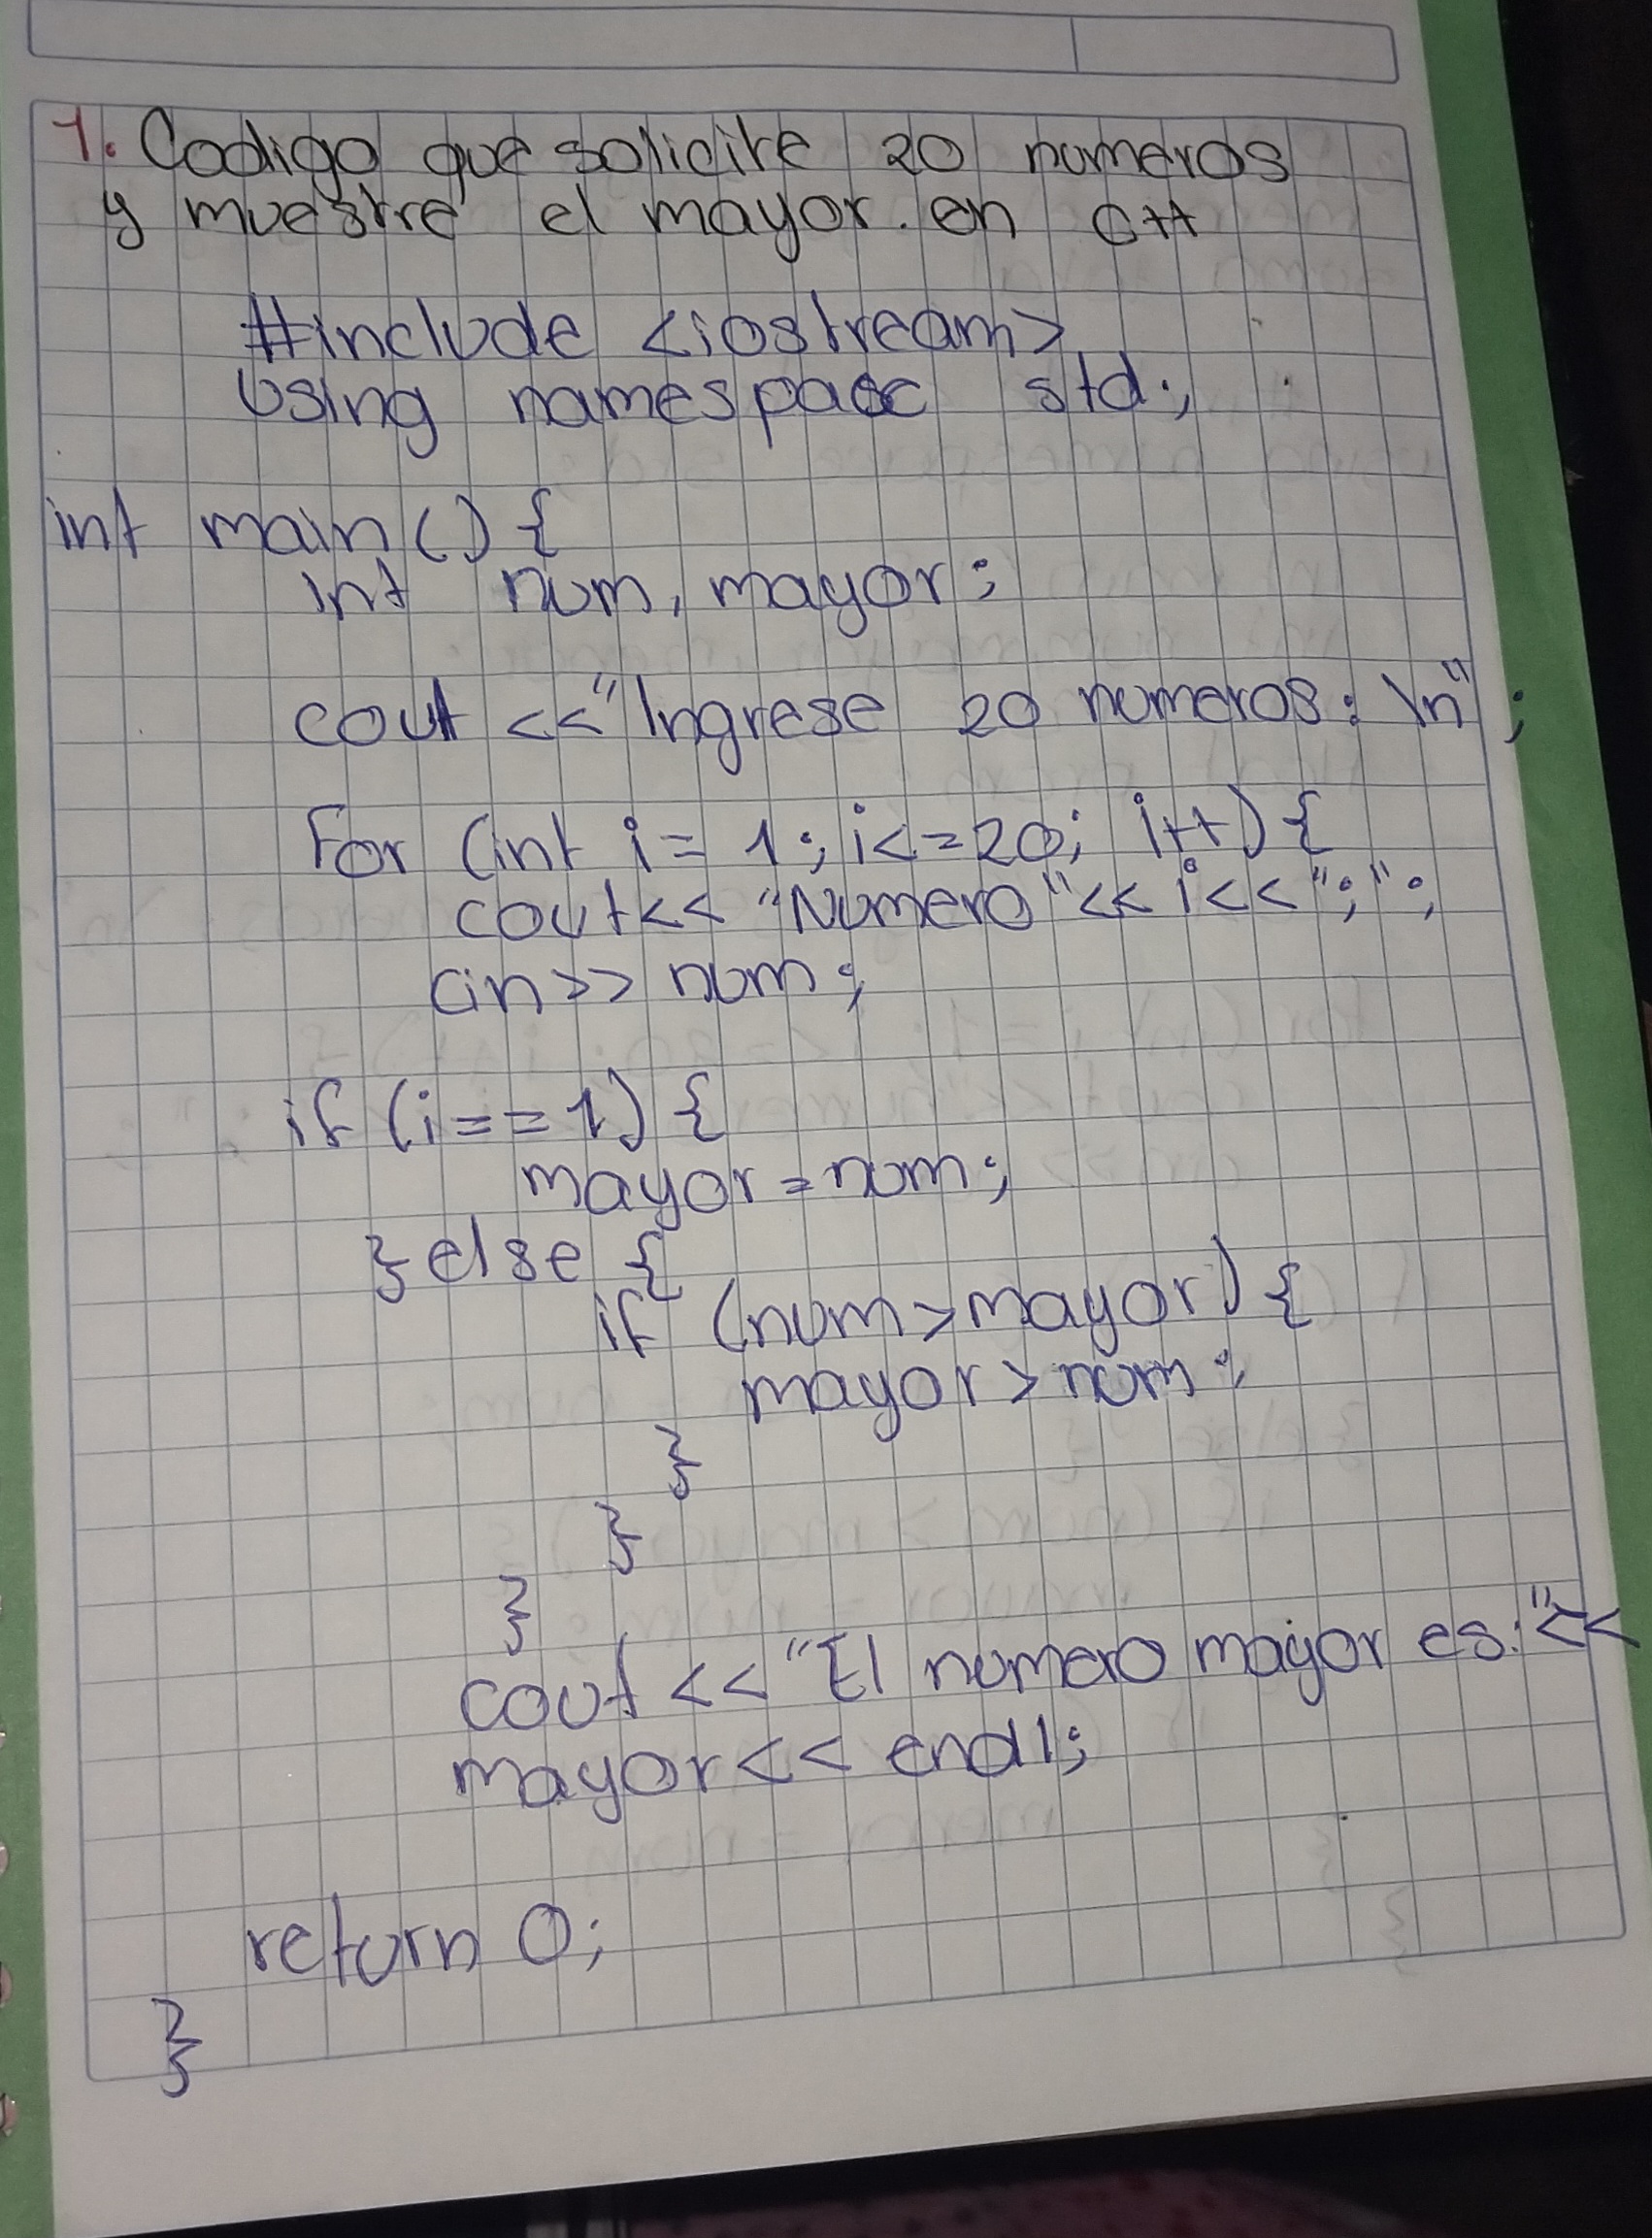 1. Codigo que solicite 20 numeros
y muestre el mayor. en C++
#include <iostream>
Using namespace std;
int main() {
int num, mayor;
cout << "Ingrese 20 numeros: \n";
For (int i = 1; i<=20; i++) {
cout<< "Numero"<< i<< ";";
cin>> num;
if (i==1) {
mayor=num;
}else {
if (num>mayor) {
mayor> num;
}
}
}
cout << "El numero mayor es:"<<
mayor<< endl;
return 0;
}